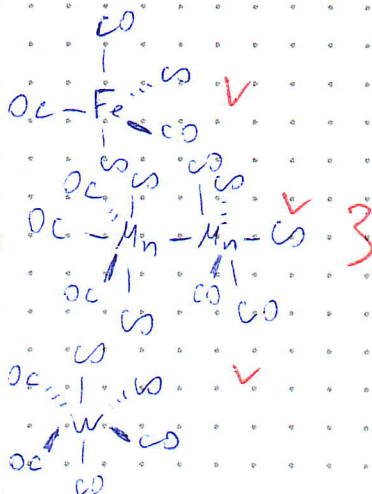 CO
CO
OC - Fe
CO
CO
CO CO
OC CO CO
OC - Mn - Mn - CO 3
OC CO
CO CO
CO
OC CO
W
OC CO
CO